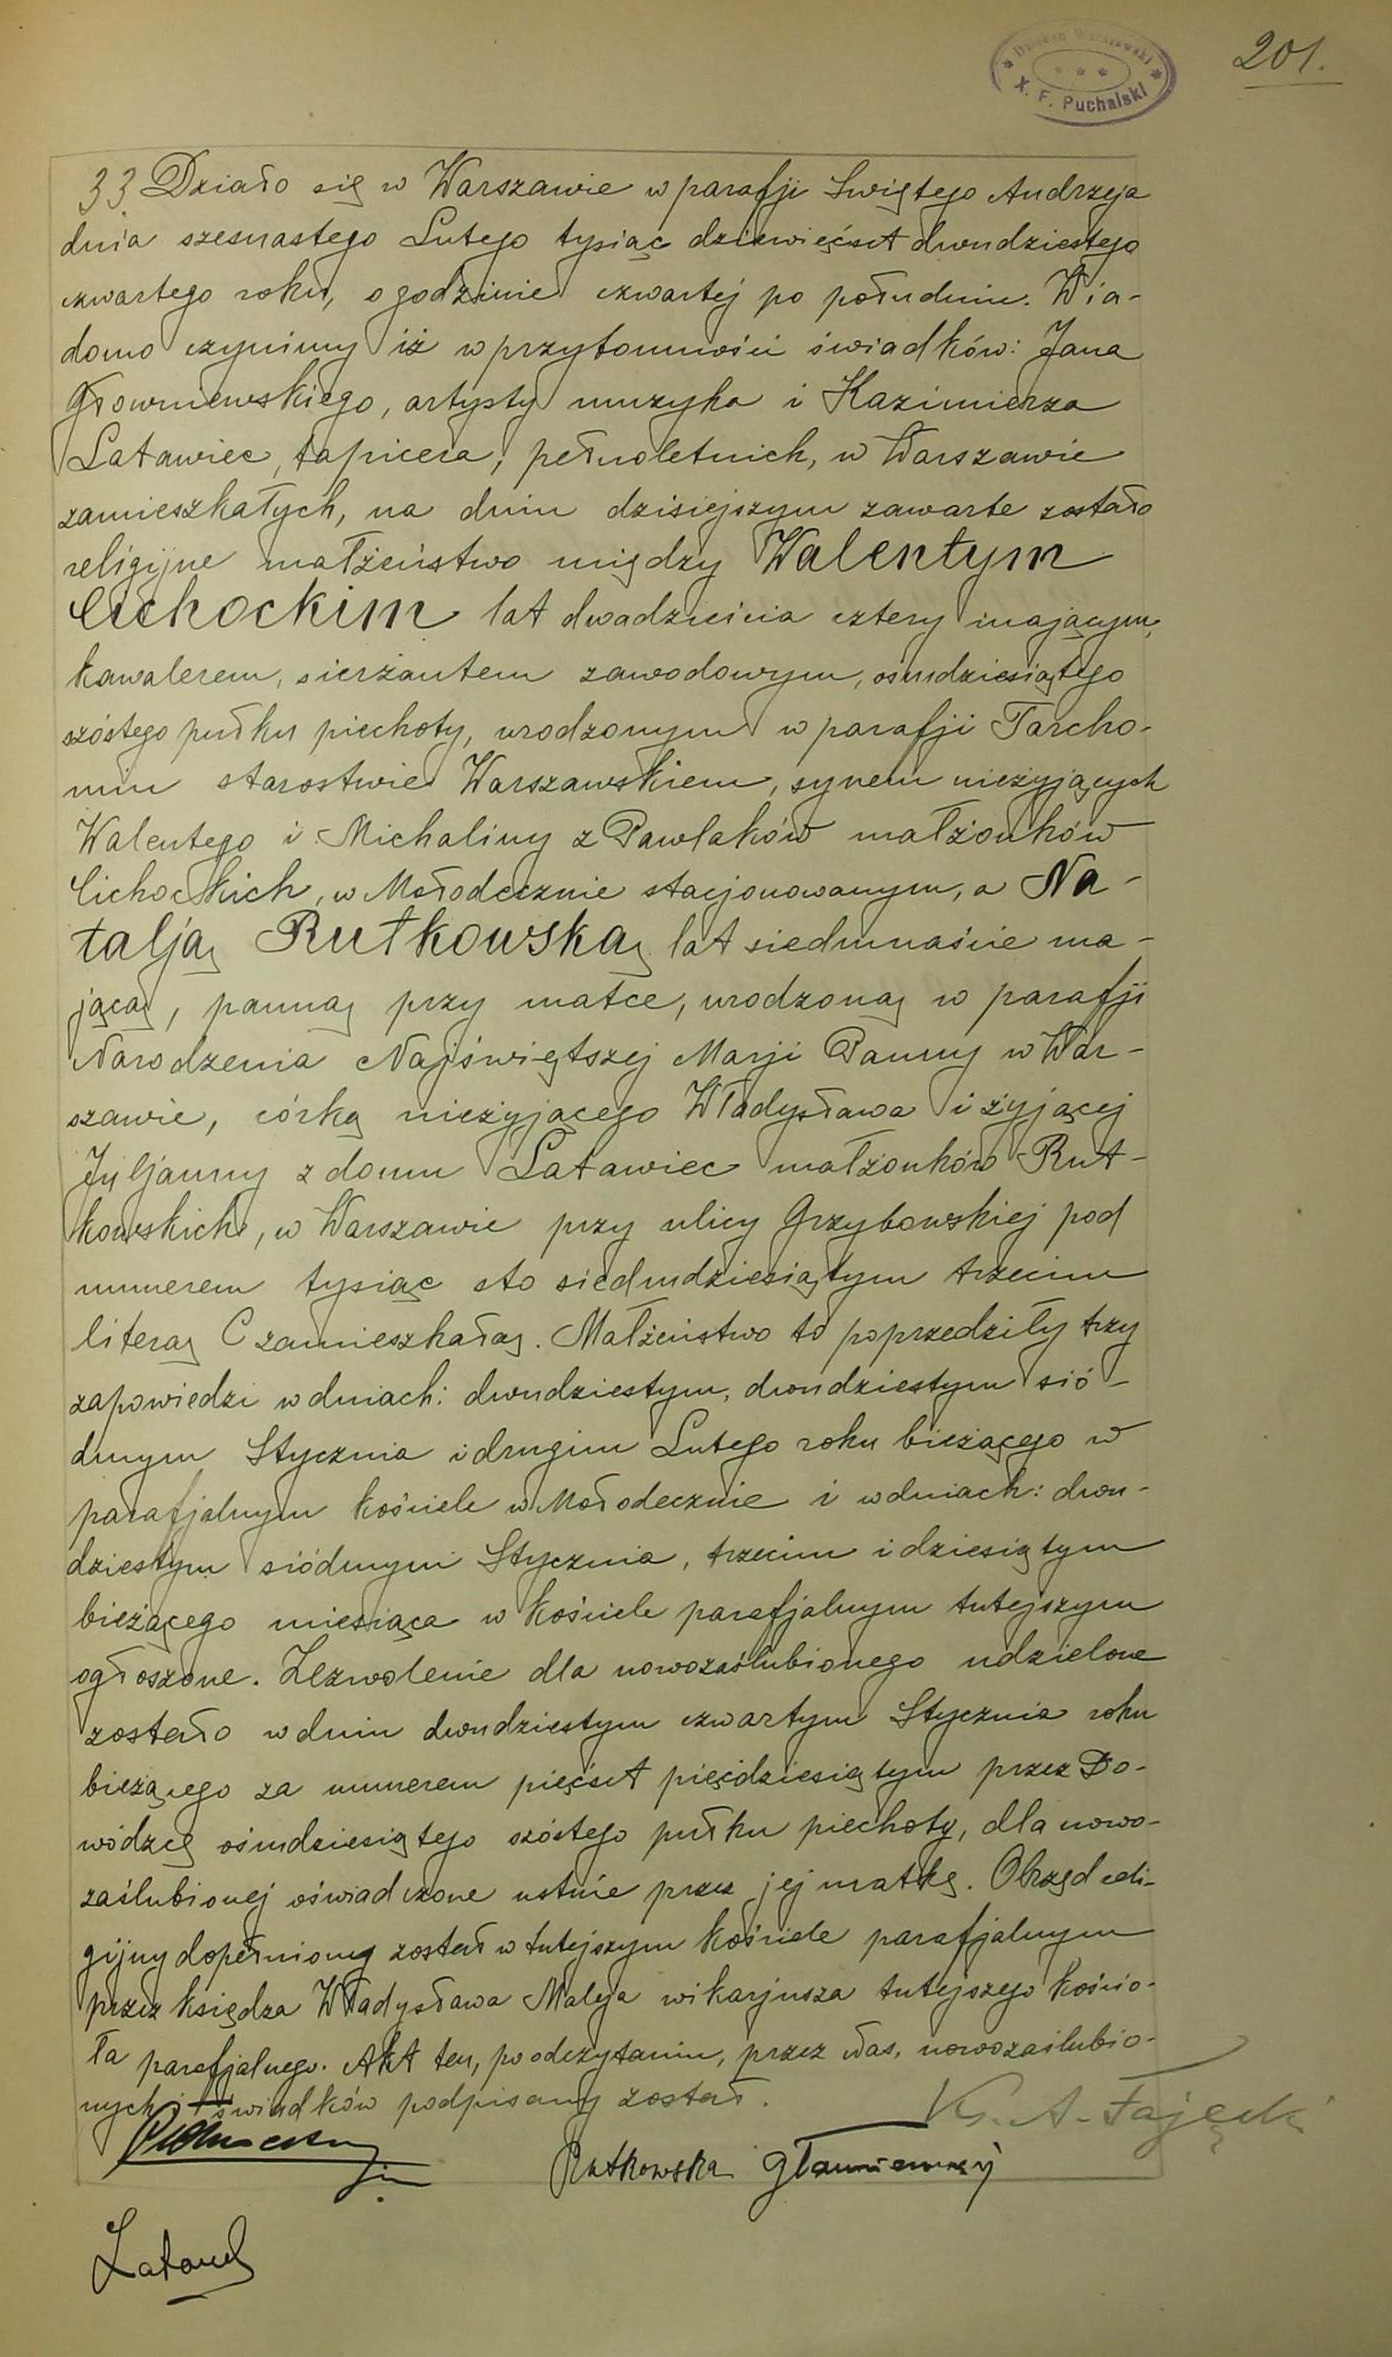 201.
Dziekan Warszawski
X. F. Puchalski
33 Działo się w Warszawie w parafji Swiętego Andrzeja
dnia szesnastego Lutego tysiąc dziewięćset dwudziestego
czwartego roku, o godzinie czwartej po południu. Wia-
domo czynimy iż w przytomności świadków: Jana
Głowniewskiego, artysty muzyka i Kazimierza
Latawiec, tapicera, pełnoletnich, w Warszawie
zamieszkałych, na dniu dzisiejszym zawarte zostało
religijne małżeństwo między Walentym
Cichockim lat dwadzieścia cztery mającym,
kawalerem, sierżantem zawodowym, ośmdziesiątego
szóstego pułku piechoty, urodzonym w parafji Tarcho-
min starostwie Warszawskiem, synem nieżyjących
Walentego i Michaliny z Pawlaków małżonków
Cichockich, w Mołodecznie stacjonowanym, a Na-
talją Rutkowską lat siedmnaście ma-
jącą, panną przy matce, urodzoną w parafji
Narodzenia Najświętszej Marji Panny w War-
szawie, córką nieżyjącego Władysława i żyjącej
Juljanny z domu Latawiec małżonków Rut-
kowskich, w Warszawie przy ulicy Grzybowskiej pod
numerem tysiąc sto siedmdziesiątym trzecim
literą C zamieszkałą. Małżeństwo to poprzedziły trzy
zapowiedzi w dniach: dwudziestym, dwudziestym sió-
dmym Stycznia i drugim Lutego roku bieżącego w
parafjalnym kościele w Mołodecznie i w dniach: dwu-
dziestym siódmym Stycznia, trzecim i dziesiątym
bieżącego miesiąca w kościele parafjalnym tutejszym
ogłoszone. Zezwolenie dla nowozaślubionego udzielone
zostało w dniu dwudziestym czwartym Stycznia roku
bieżącego za numerem pięćset pięćdziesiątym przez Do-
wódzcę ośmdziesiątego szóstego pułku piechoty, dla nowo-
zaślubionej oświadczone ustnie przez jej matkę. Obrzęd reli-
gijny dopełniony został w tutejszym kościele parafjalnym
przez księdza Władysława Maleja wikarjusza tutejszego kościo-
ła parafjalnego. Akt ten, po odczytaniu, przez Nas, nowozaślubio-
nych i świadków podpisany został.
Ks. A. Fajęcki
Rutkowska Głowniewski